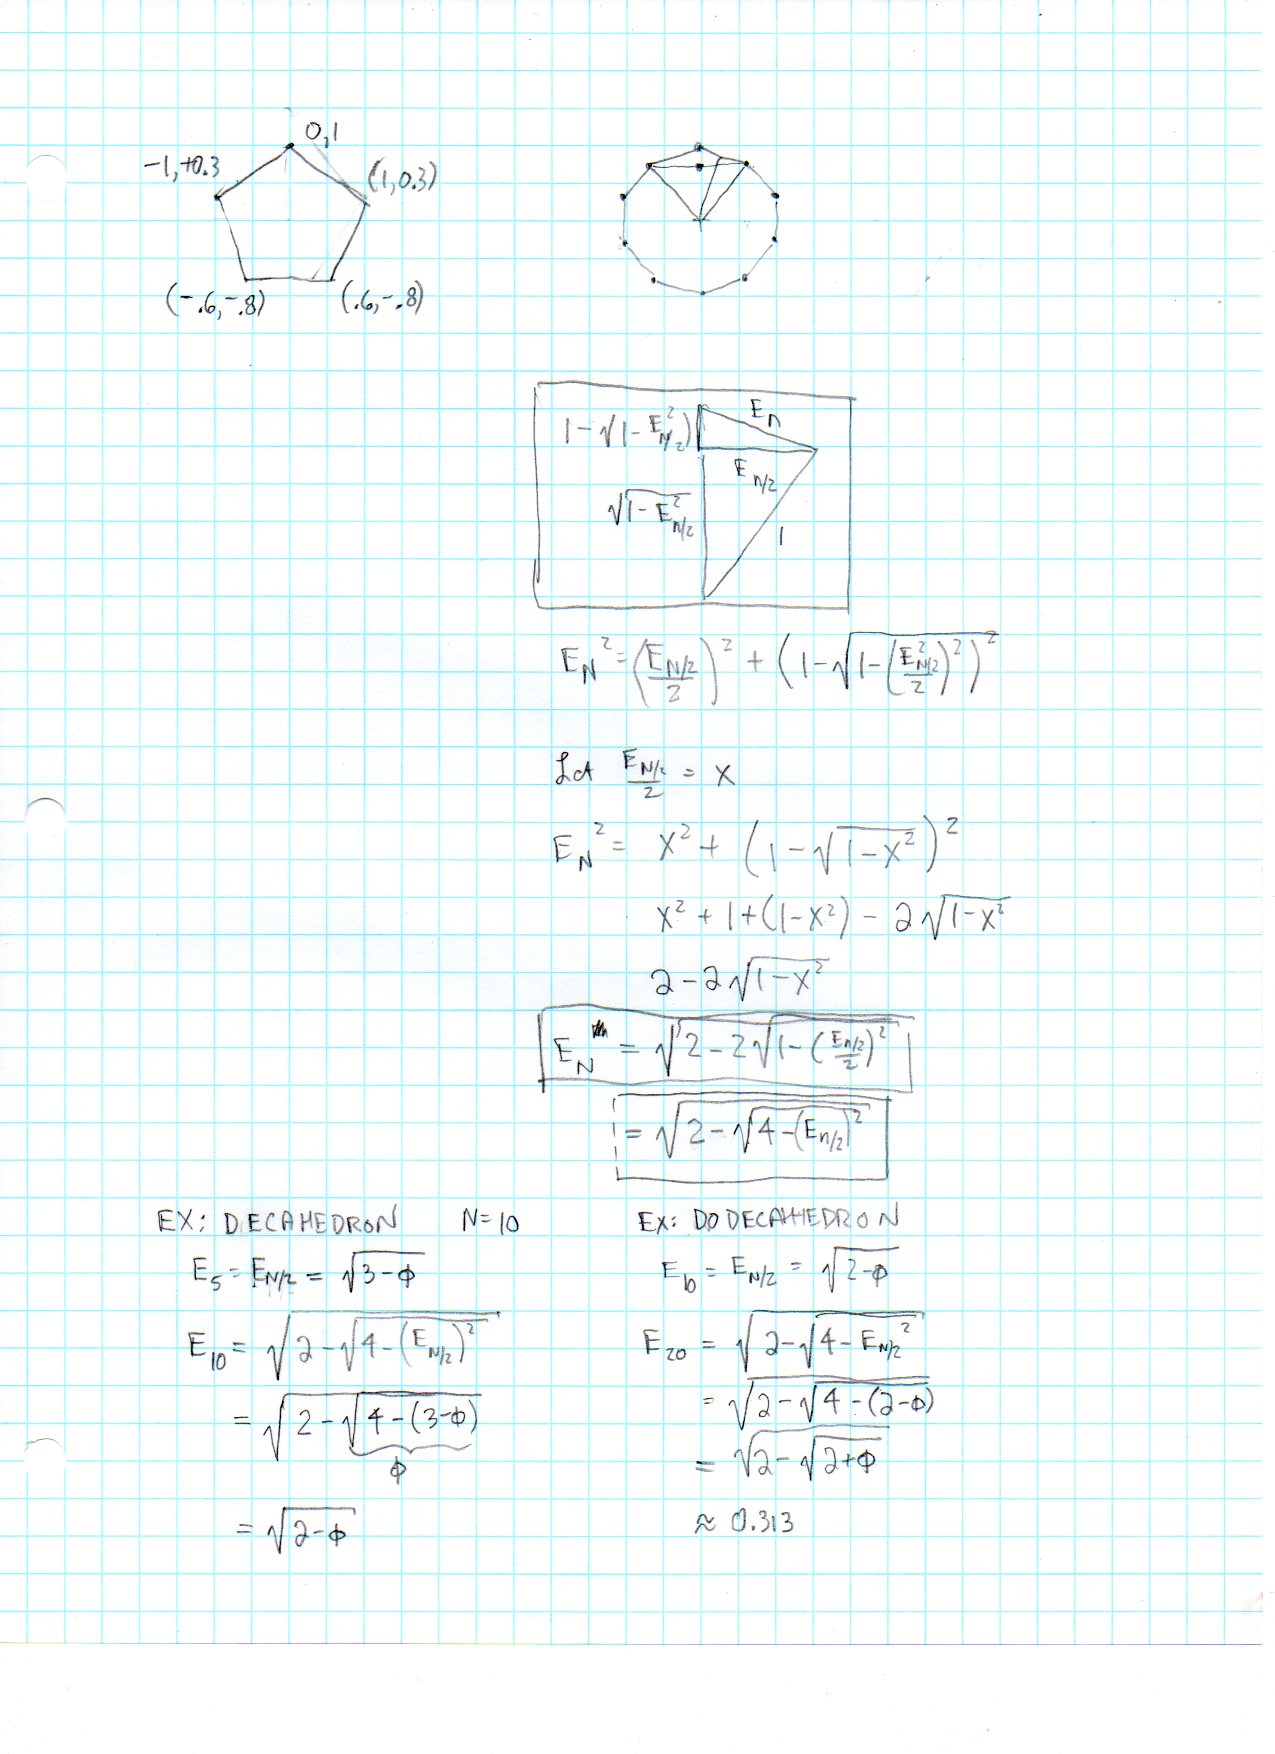 0,1
-1,+0.3
(1,0.3)
(-.6,-.8)
(.6,-.8)
1-√(1-E²_{N/2})
E_n
E_{n/2}
√(1-E²_{n/2})
1
E_N² = (E_{N/2}/2)² + (1-√(1-(E²_{N/2}/2)²))²
Let E_{N/2}/2 = x
E_N² = x² + (1-√(1-x²))²
x² + 1+(1-x²) - 2√(1-x²)
2-2√(1-x²)
E_N = √(2-2√(1-(E_{n/2}/2)²))
= √(2-√(4-(E_{n/2})²))
EX: DECAHEDRON N=10
E_5 = E_{N/2} = √(3-φ)
E_10 = √(2-√(4-(E_{N/2})²))
= √(2-√(4-(3-φ)))
φ
= √(2-φ)
EX: DODECAHEDRON
E_10 = E_{N/2} = √(2-φ)
E_20 = √(2-√(4-E_{N/2}²))
= √(2-√(4-(2-φ)))
= √(2-√(2+φ))
≈ 0.313